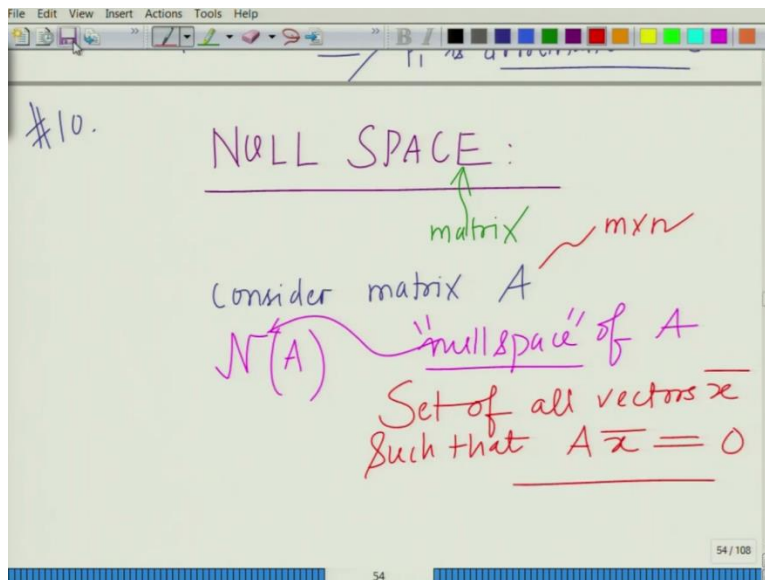 File Edit View Insert Actions Tools Help
» B I
#10.
NULL SPACE :
matrix
m×n
Consider matrix A
N(A) "null space" of A
Set of all vectors x̅
Such that A x̅ = 0
54 / 108
54